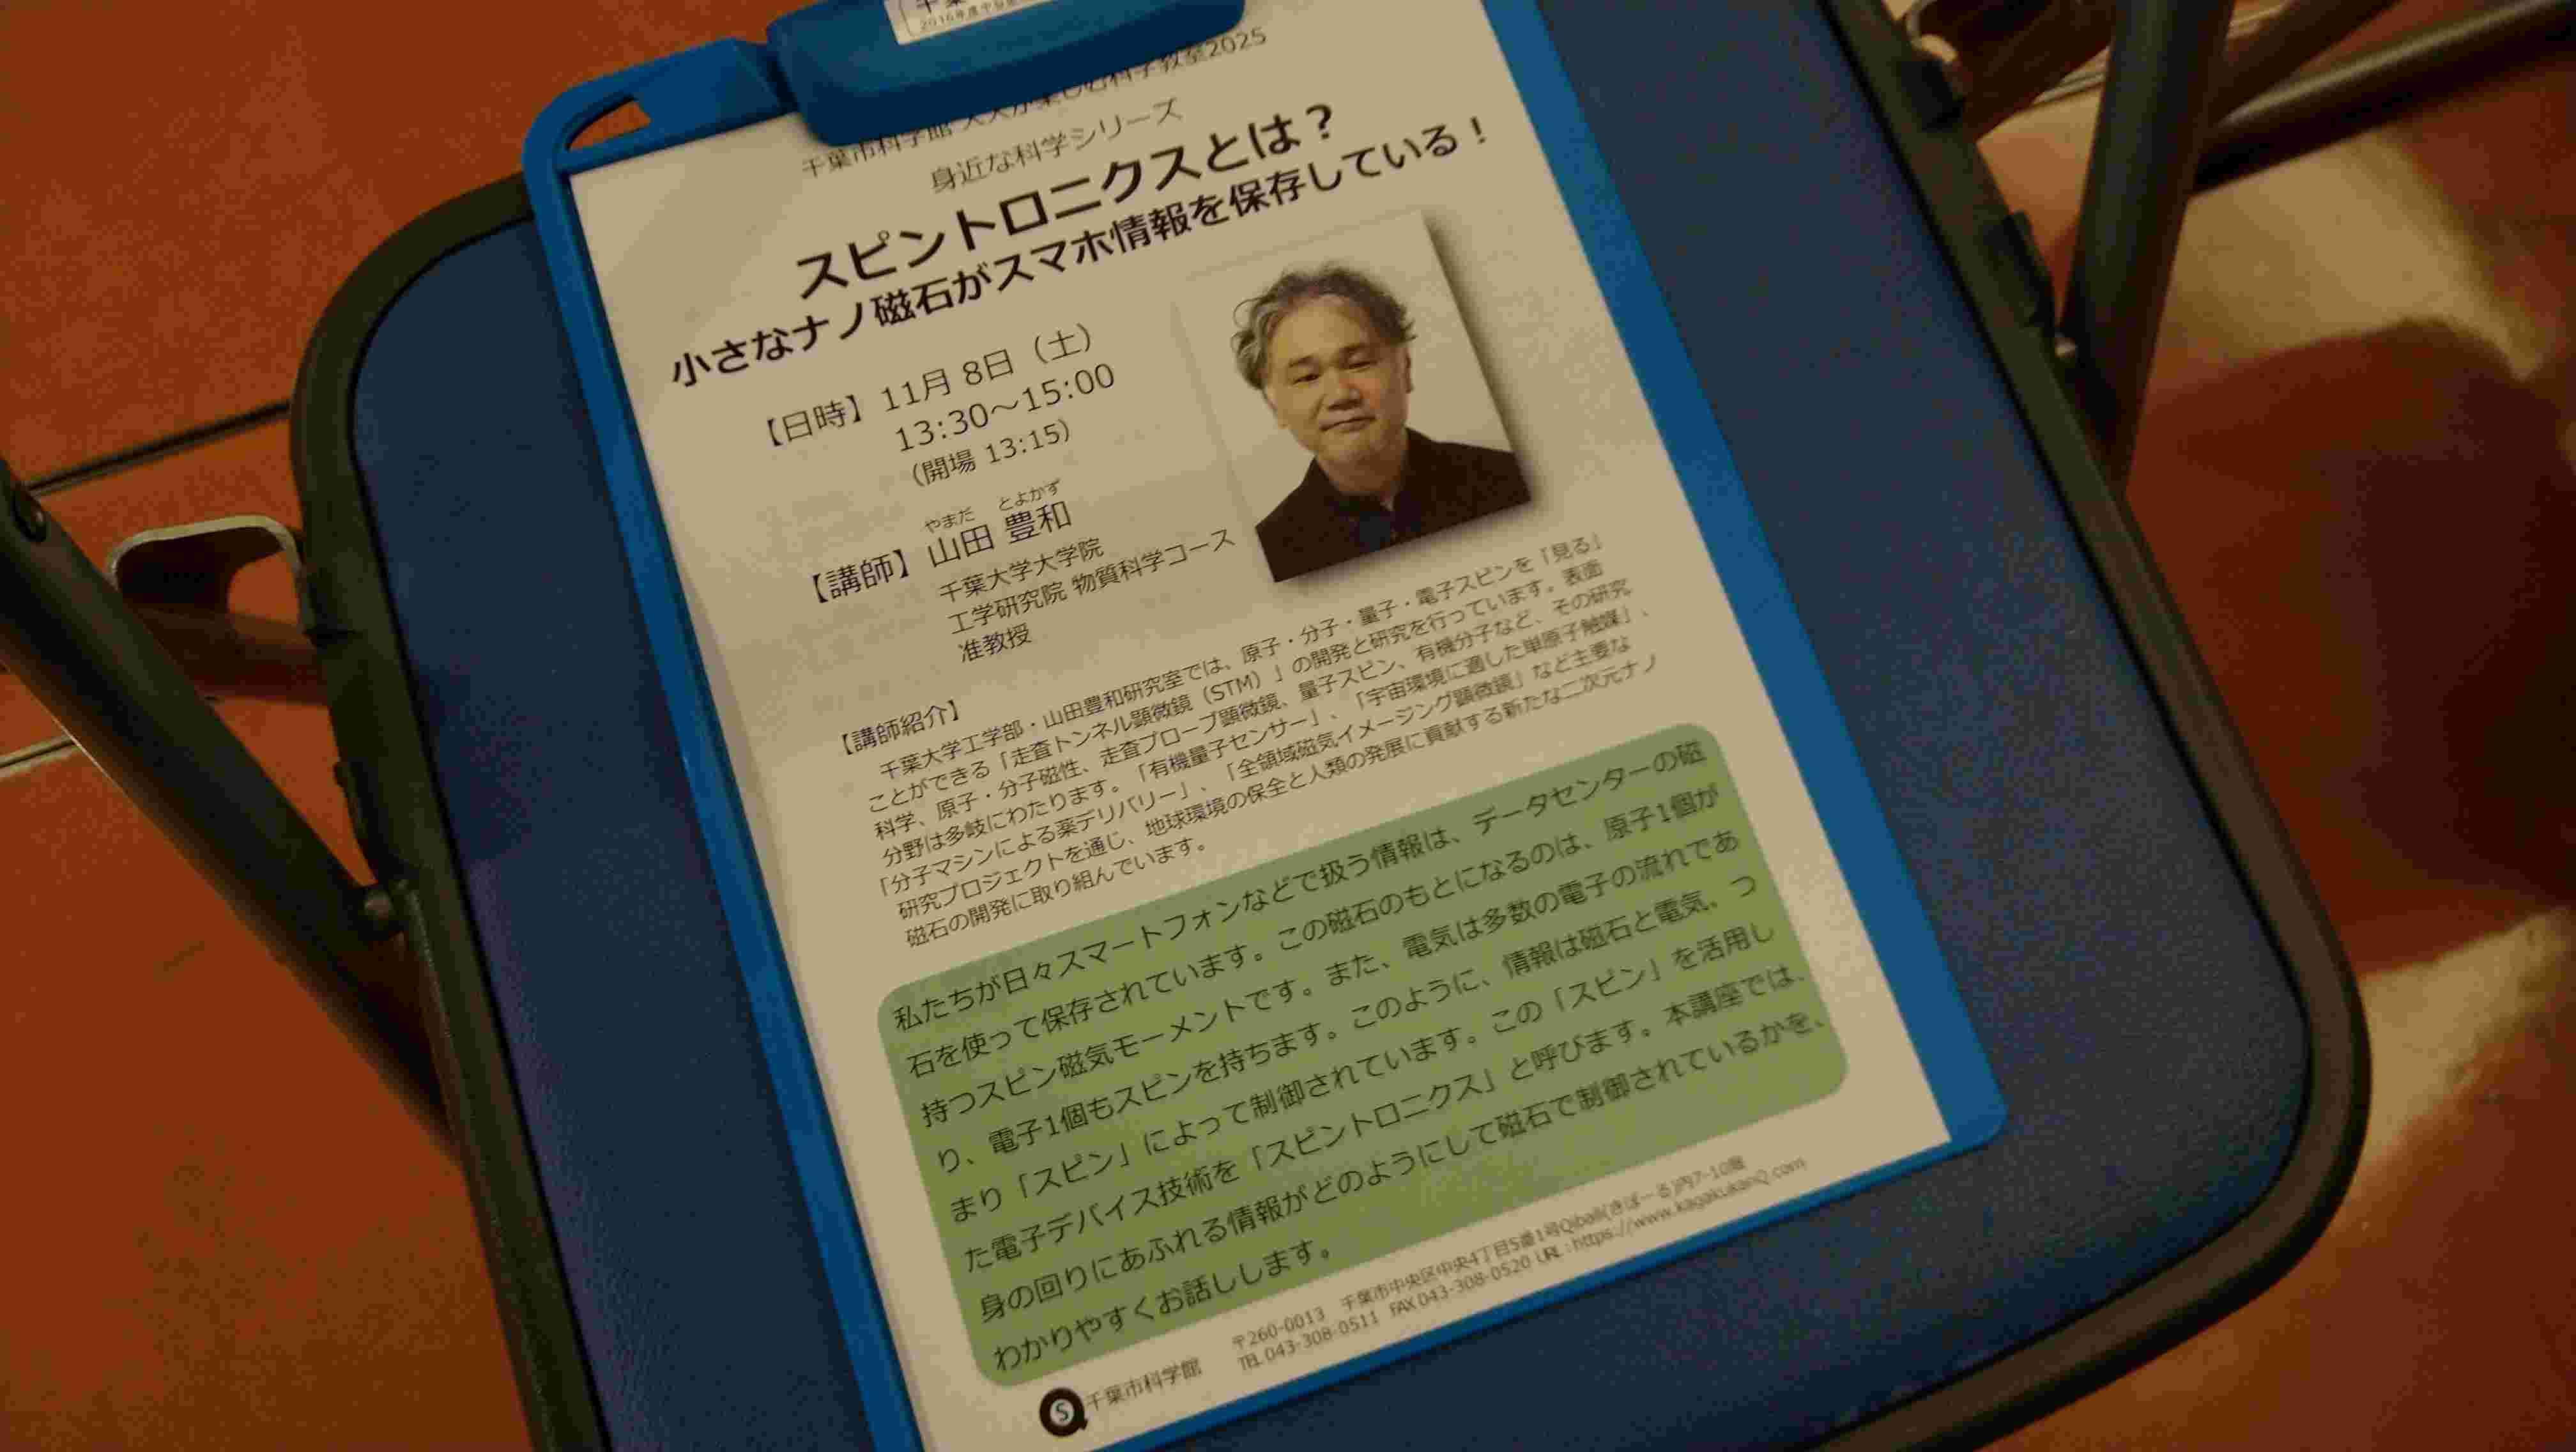 2016年度
千葉市科学館 大人が楽しむ科学教室2025
身近な科学シリーズ
スピントロニクスとは？
小さなナノ磁石がスマホ情報を保存している！
【日時】11月 8日（土）
13:30～15:00
（開場 13:15）
やまだ とよかず
【講師】山田 豊和
千葉大学大学院
工学研究院 物質科学コース
准教授
【講師紹介】
千葉大学工学部・山田豊和研究室では、原子・分子・量子・電子スピンを「見る」
ことができる「走査トンネル顕微鏡（STM）」の開発と研究を行っています。表面
科学、原子・分子磁性、走査プローブ顕微鏡、量子スピン、有機分子など、その研究
分野は多岐にわたります。「有機量子センサー」、「宇宙環境に適した単原子触媒」、
「分子マシンによる薬デリバリー」、「全領域磁気イメージング顕微鏡」など主要な
研究プロジェクトを通じ、地球環境の保全と人類の発展に貢献する新たな二次元ナノ
磁石の開発に取り組んでいます。
私たちが日々スマートフォンなどで扱う情報は、データセンターの磁
石を使って保存されています。この磁石のもとになるのは、原子1個が
持つスピン磁気モーメントです。また、電気は多数の電子の流れであ
り、電子1個もスピンを持ちます。このように、情報は磁石と電気、つ
まり「スピン」によって制御されています。この「スピン」を活用し
た電子デバイス技術を「スピントロニクス」と呼びます。本講座では、
身の回りにあふれる情報がどのようにして磁石で制御されているかを、
わかりやすくお話しします。
千葉市科学館
〒260-0013 千葉市中央区中央4丁目5番1号Qiball(きぼーる)内7-10階
TEL 043-308-0511 FAX 043-308-0520 URL:https://www.kagakukanQ.com